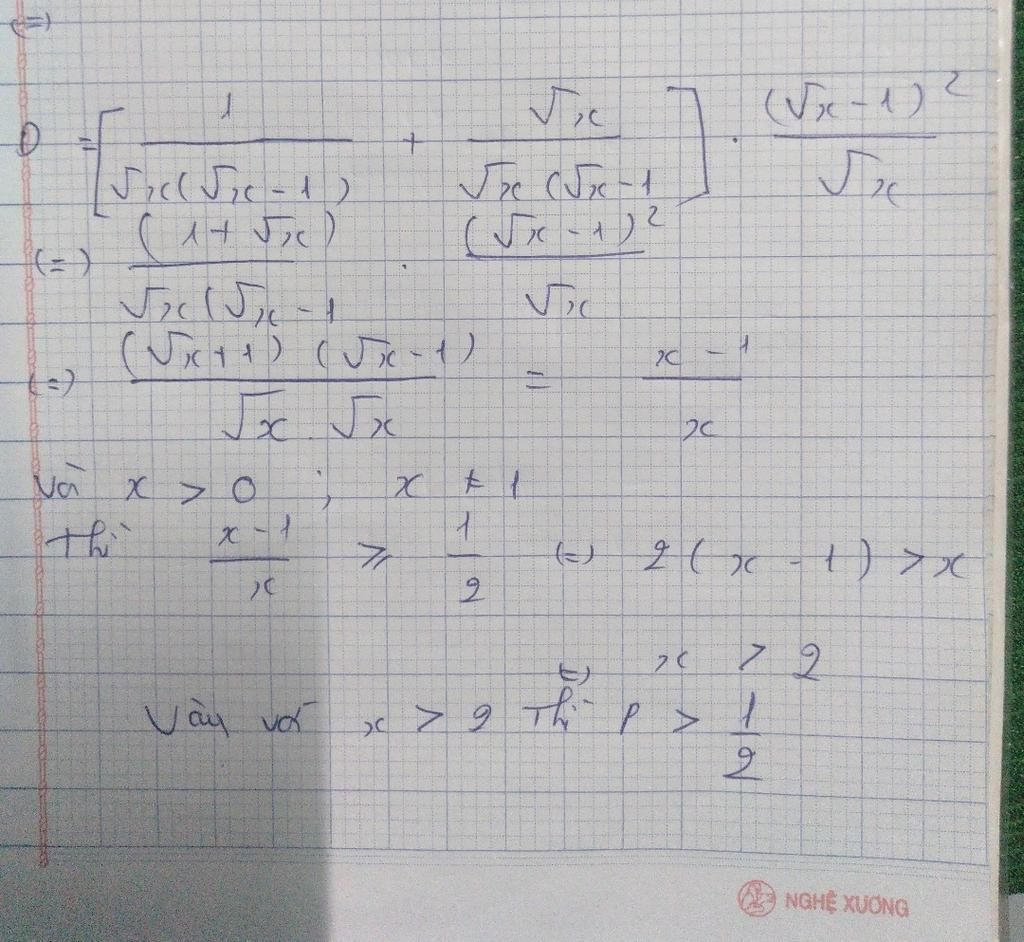 (=)
P = [ 1 / √x(√x - 1) + √x / √x (√x - 1 ] . (√x - 1)² / √x
(=) (1 + √x) / √x (√x - 1 . (√x - 1)² / √x
(=) (√x + 1) (√x - 1) / √x . √x = x - 1 / x
và x > 0 ; x ≠ 1
Thì x - 1 / x ≥ 1 / 2 (=) 2 ( x - 1 ) > x
(=) x > 2
Vậy với x > 2 Thì P > 1 / 2
NGHỆ XƯƠNG